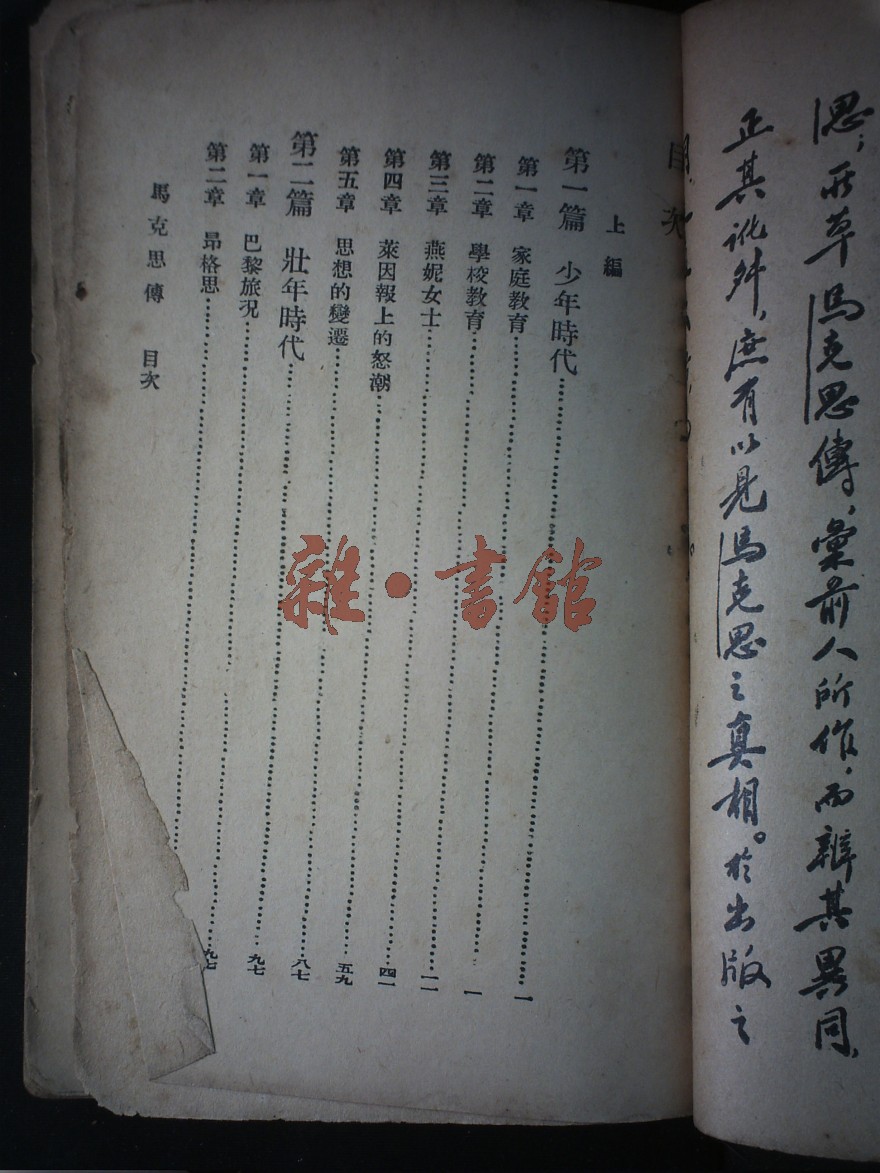 思,所草馬克思傳、彙前人所作,而辨其異同,
正其訛舛,庶有以見馬克思之真相。於出版之
目次
上編
第一篇 少年時代……一
第一章 家庭教育……一
第二章 學校教育……一一
第三章 燕妮女士……四一
第四章 萊因報上的怒潮……五九
第五章 思想的變遷……八七
第二篇 壯年時代……九七
第一章 巴黎旅況……九七
第二章 昂格思……
馬克思傳 目次
雜·書館